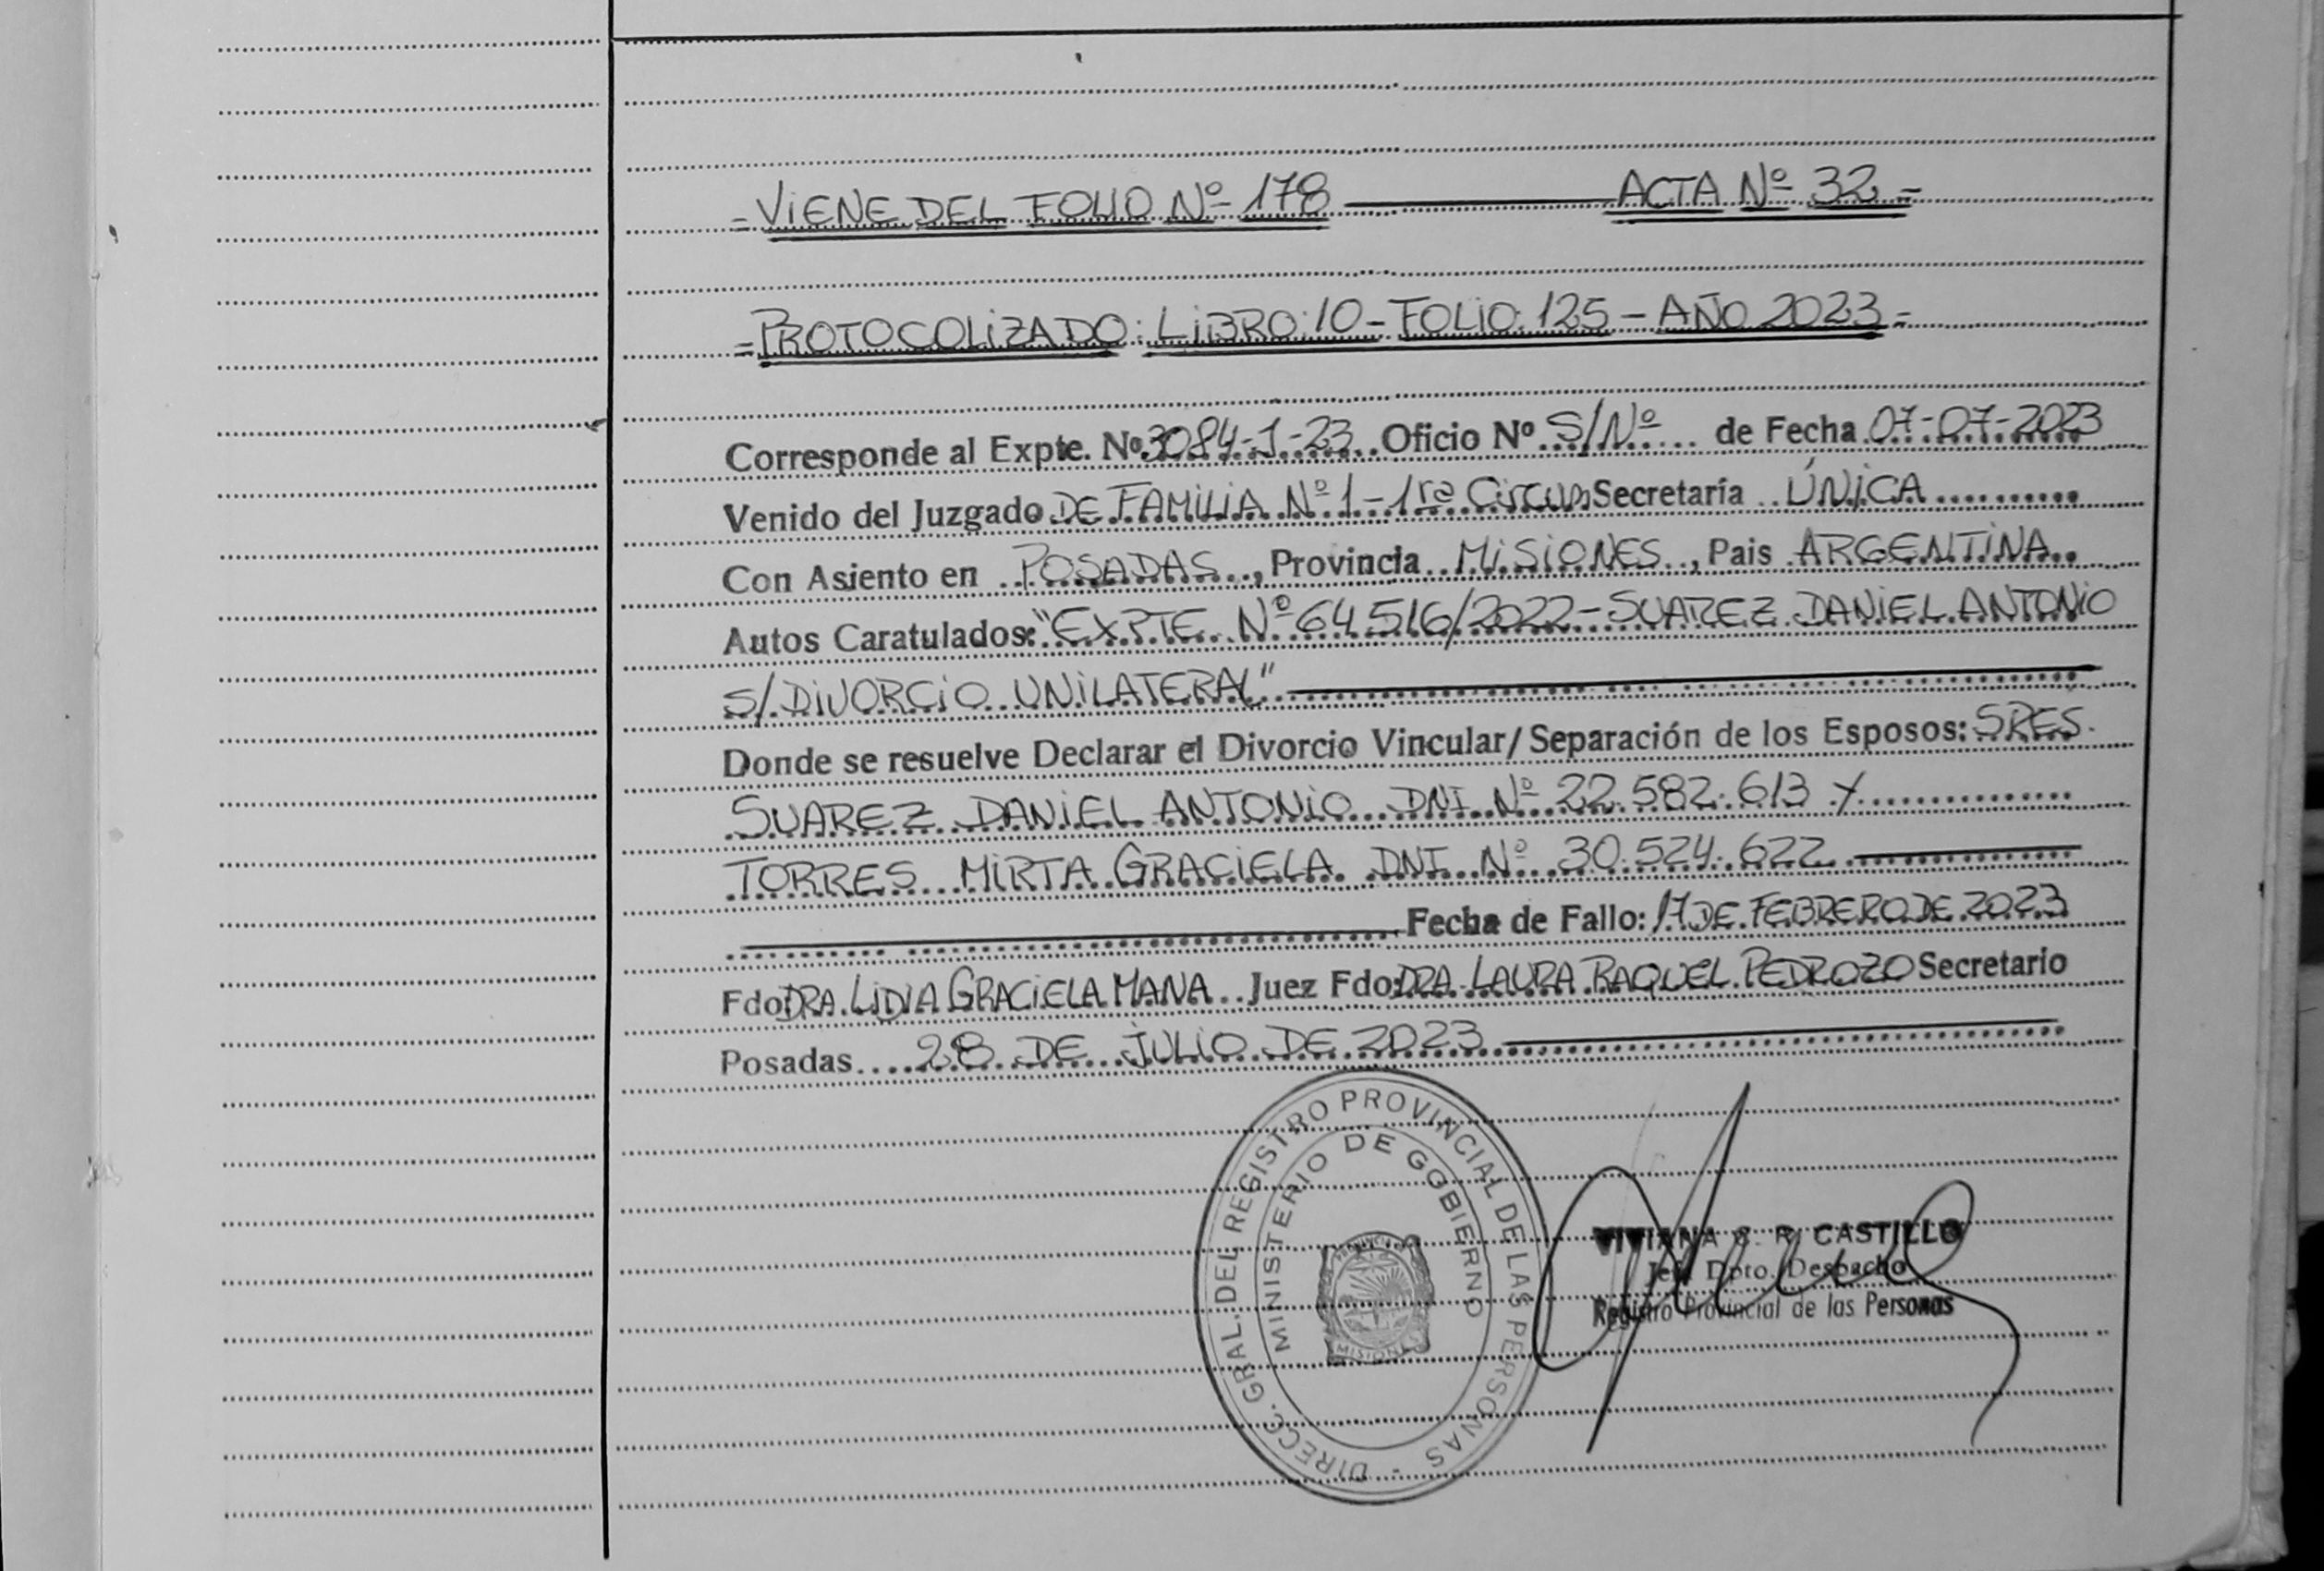 = VIENE DEL FOLIO Nº 178 ACTA Nº 32 =
= PROTOCOLIZADO: LIBRO: 10 - FOLIO: 125 - AÑO 2023 =
Corresponde al Expte. Nº 3084-1-23 Oficio Nº S/Nº de Fecha 07-07-2023
Venido del Juzgado DE FAMILIA Nº 1 - 1ra Circun Secretaría ÚNICA
Con Asiento en POSADAS, Provincia MISIONES, Pais ARGENTINA
Autos Caratulados: "EXPTE Nº 64516/2022 - SUAREZ DANIEL ANTONIO
S/ DIVORCIO UNILATERAL"
Donde se resuelve Declarar el Divorcio Vincular/ Separación de los Esposos: SRES.
SUAREZ DANIEL ANTONIO DNI Nº 22.582.613 Y
TORRES MIRTA GRACIELA DNI Nº 30.524.622
Fecha de Fallo: 17 DE FEBRERO DE 2023
Fdo DRA. LIDIA GRACIELA MANA Juez Fdo: DRA. LAURA RAQUEL PEDROZO Secretario
Posadas 28 DE JULIO DE 2023
DIRECC. GRAL. DEL REGISTRO PROVINCIAL DE LAS PERSONAS -
MINISTERIO DE GOBIERNO
MISIONES
VIVIANA S. R. CASTILLO
Jefe Dpto. Despacho
Registro Provincial de las Personas